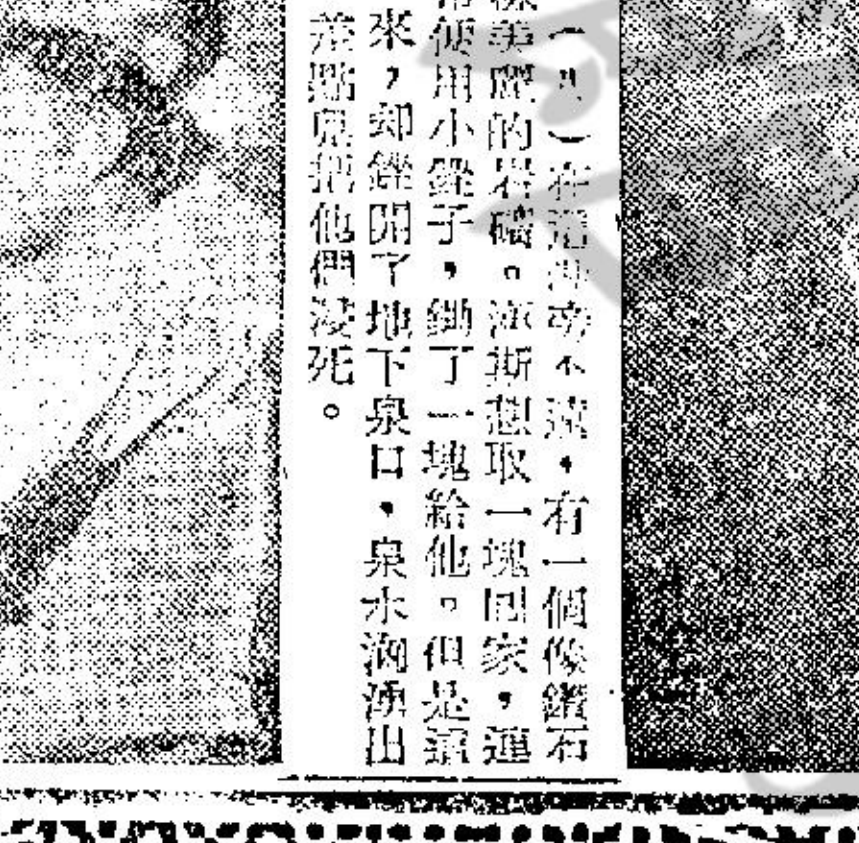 （八）在不遠，有一個像鑽石
美麗的岩。斯想取一塊回家，連
便用小子，鋤了一塊給他。但是這
來，却開了地下泉口，泉水洶湧出
差點兒把他們浸死。